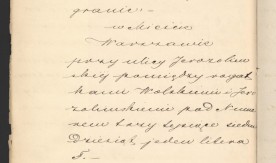 granic:-
w Mieście
Warszawie
przy ulicy Jerozolim
skiej pomiędzy rogat
kami Wolskiemi i Jero
zolimskiemi pod Nume
rem trzy tysiące siedm
dziesiąt, jeden litera
F.-